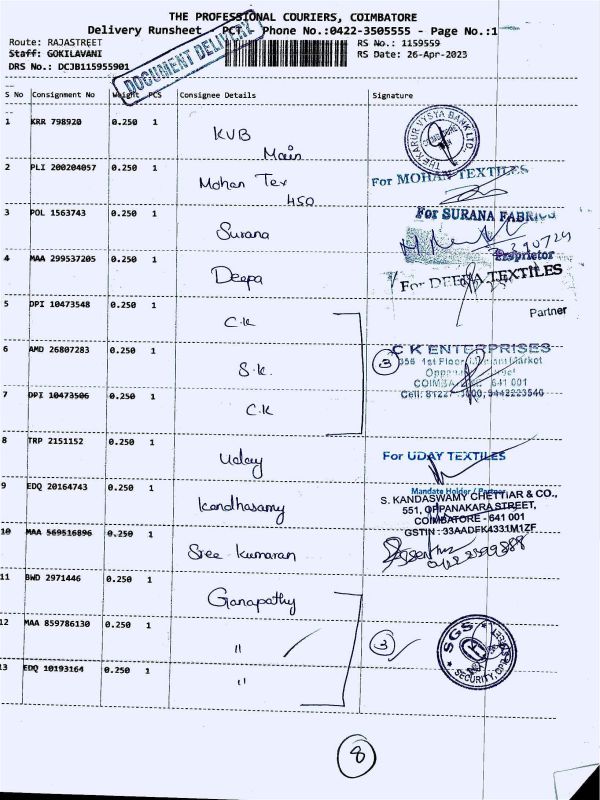 THE PROFESSIONAL COURIERS, COIMBATORE
Delivery Runsheet - PCT Phone No.:0422-3505555 - Page No.:1
Route: RAJASTREET
RS No.: 1159559
Staff: GOKILAVANI
RS Date: 26-Apr-2023
DRS No.: DCJB115955901
DOCUMENT DELIVERY
S No Consignment No Weight PCS Consignee Details Signature
1 KRR 798920 0.250 1 KVB Main
THE KARUR VYSYA BANK LTD.
2 PLI 200204057 0.250 1 Mohan Tex 450
For MOHAN TEXTILES
3 POL 1563743 0.250 1 Surana
For SURANA FABRICS
Proprietor
4 MAA 299537205 0.250 1 Deepa
For DEEPA TEXTILES
Partner
5 DPI 10473548 0.250 1 C.K
6 AMD 26807283 0.250 1 S.K.
3
C K ENTERPRISES
1st Floor
Market
COIMBA 641 001
7 DPI 10473506 0.250 1 C.K
8 TRP 2151152 0.250 1 Uday
For UDAY TEXTILES
Mandate Holder / Partner
9 EDQ 20164743 0.250 1 Kandhasamy
S. KANDASWAMY CHETTIAR & CO.,
551, OPPANAKARA STREET,
COIMBATORE - 641 001
GSTIN : 33AADFK4331M1ZF
10 MAA 569516896 0.250 1 Sree Kumaran
11 BWD 2971446 0.250 1 Ganapathy
12 MAA 859786130 0.250 1 "
3
SGS
SECURITY
13 EDQ 10193164 0.250 1 "
8